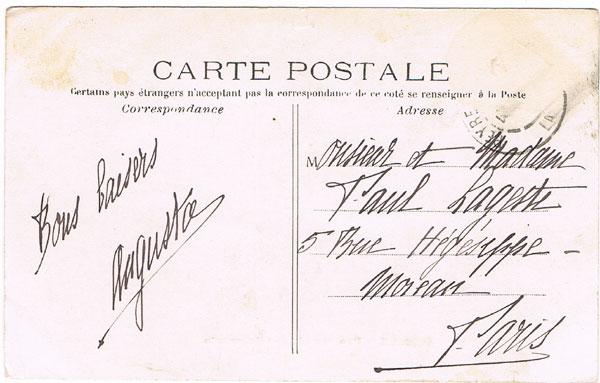 CARTE POSTALE
Certains pays étrangers n'acceptant pas la correspondance de ce coté se renseigner à la Poste
Correspondance
Adresse
Bons baisers
Augusta
Monsieur et Madame
Paul Lageste
5 Rue Hégésippe -
Moreau
Paris